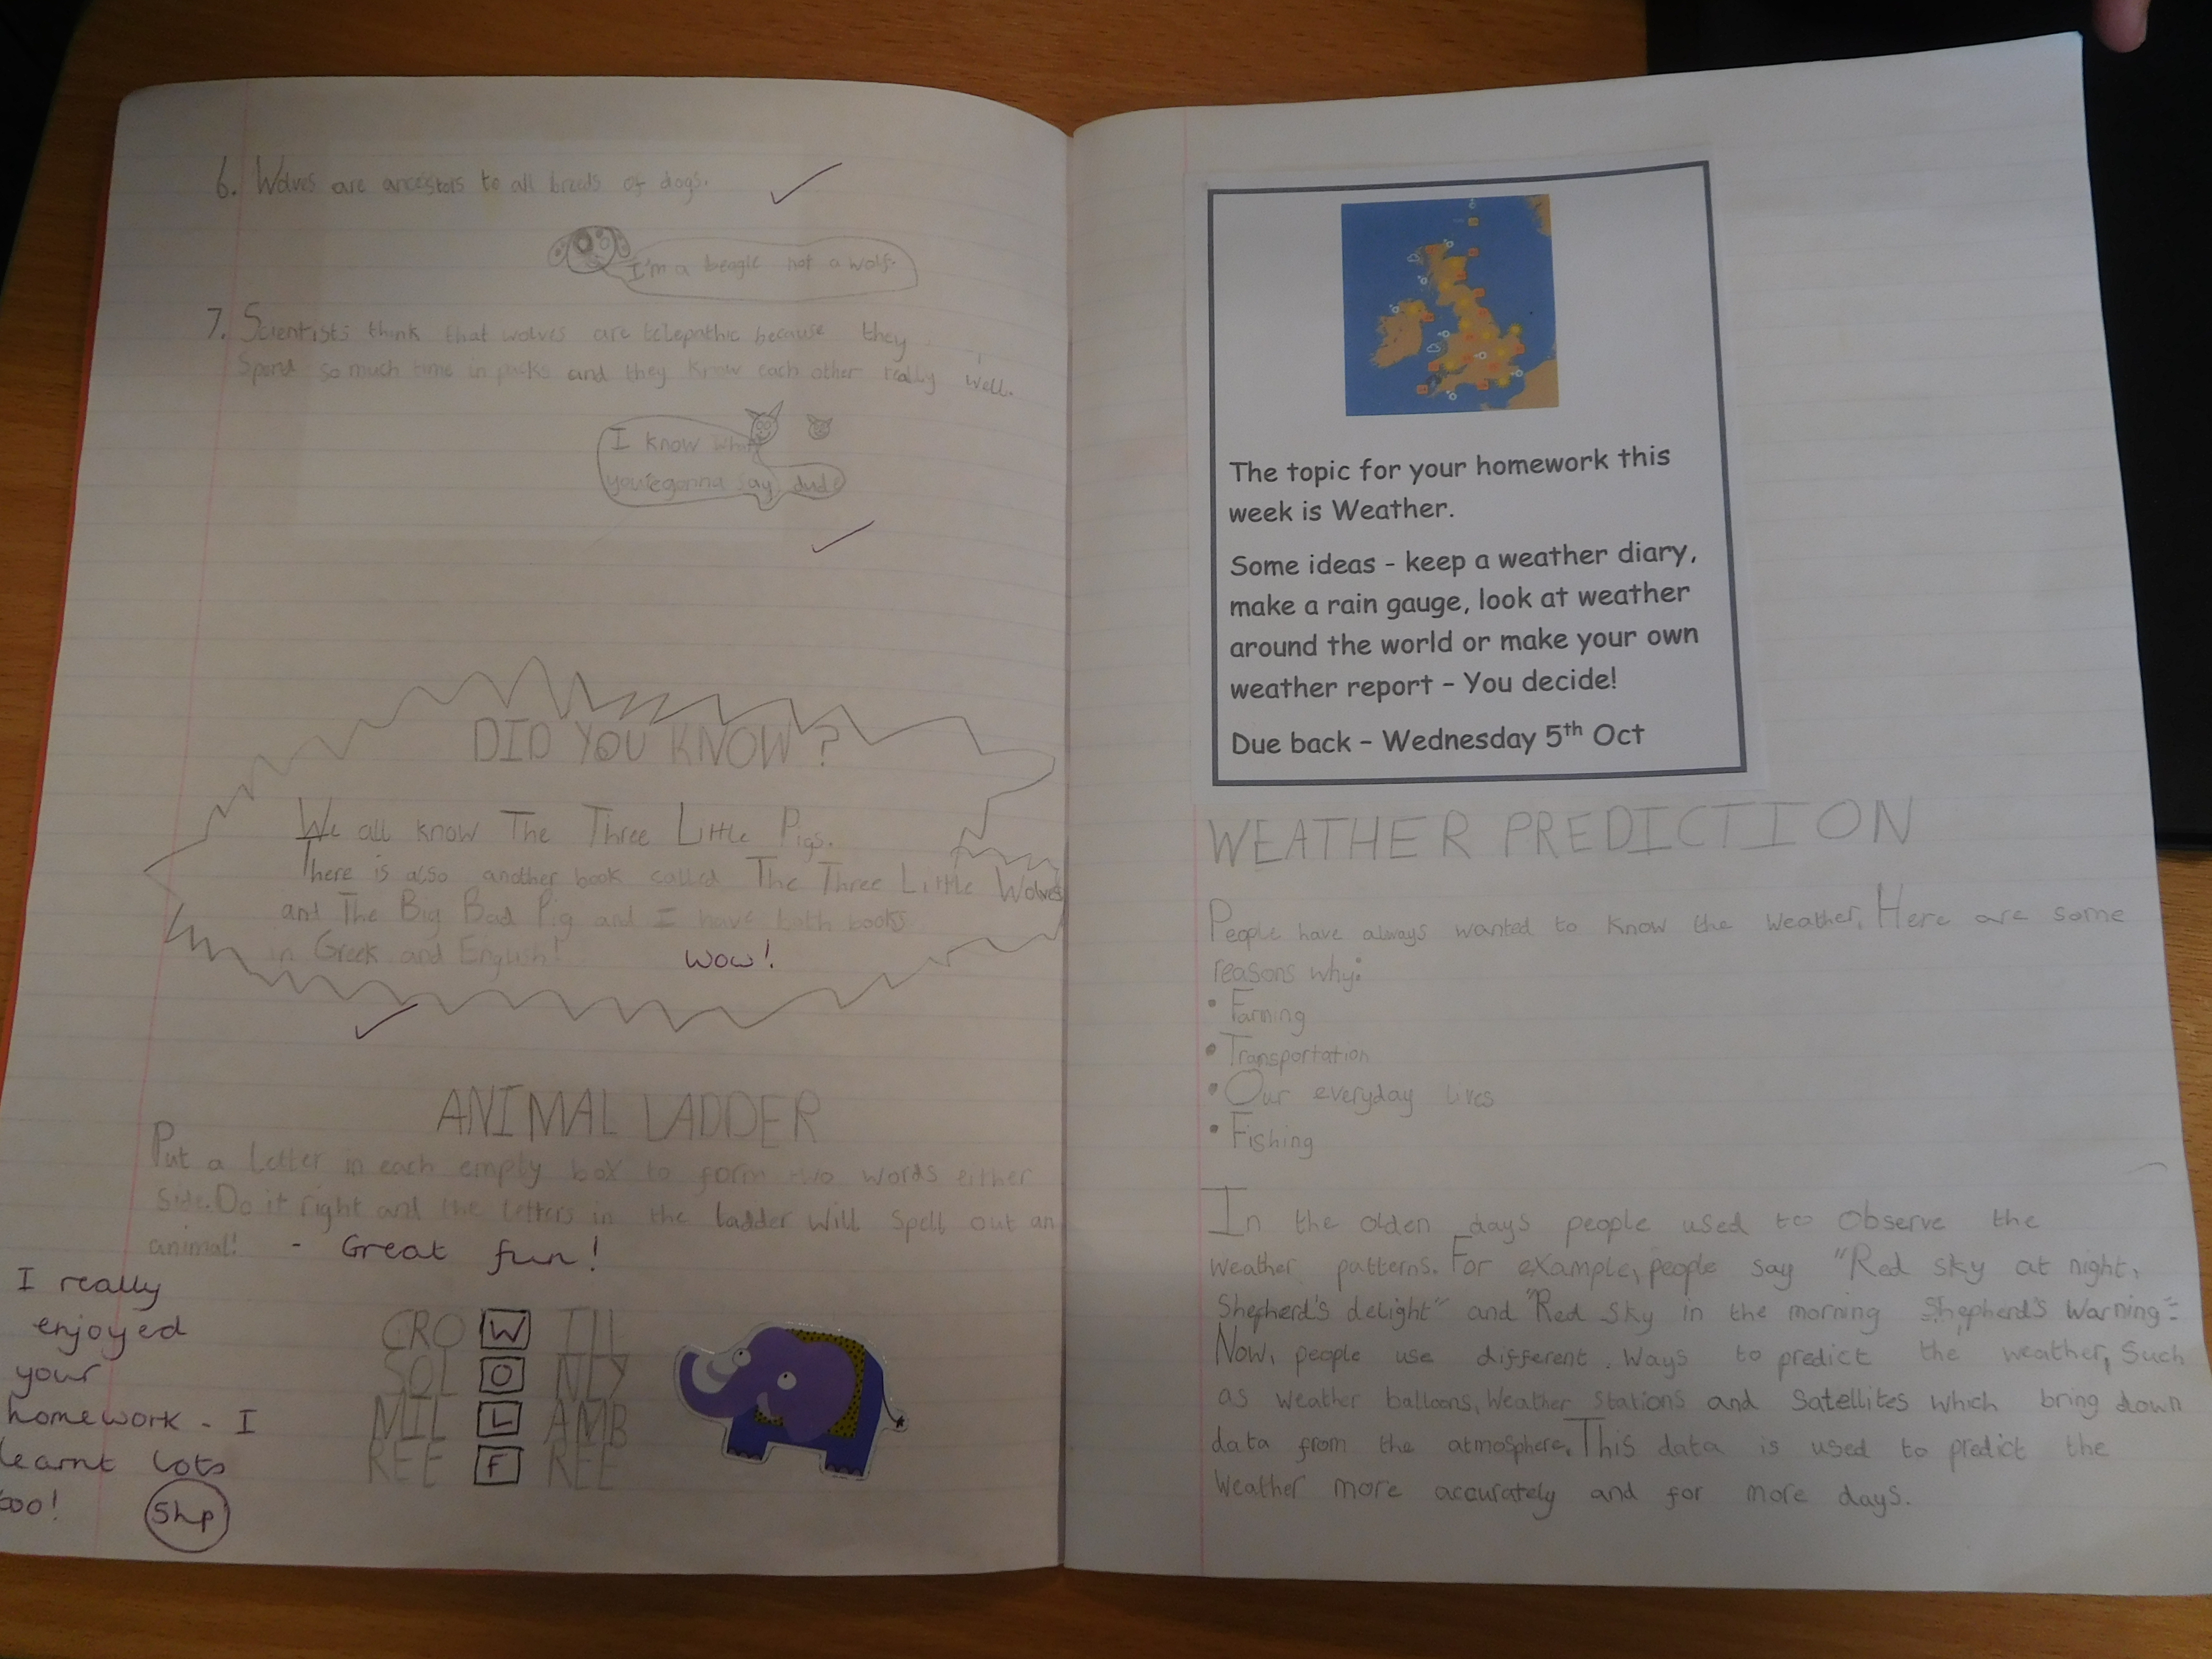 6. Wolves are ancestors to all breeds of dogs.
I'm a beagle not a wolf.
7. Scientists think that wolves are telepathic because they
spend so much time in packs and they know each other really well.
I know what
you're gonna say dude
DID YOU KNOW?
We all know The Three Little Pigs.
There is also another book called The Three Little Wolves
and The Big Bad Pig and I have both books
in Greek and English!
Wow!
ANIMAL LADDER
Put a letter in each empty box to form two words either
side. Do it right and the letters in the ladder will spell out an
animal! - Great fun!
I really
enjoyed
your
homework - I
learnt lots
too!
5hp
CRO W ILL
SOL O NLY
MIL L AMB
REE F REE
The topic for your homework this
week is Weather.
Some ideas - keep a weather diary,
make a rain gauge, look at weather
around the world or make your own
weather report - You decide!
Due back - Wednesday 5th Oct
WEATHER PREDICTION
People have always wanted to know the weather. Here are some
reasons why:
• Farming
• Transportation
• Our everyday lives
• Fishing
In the olden days people used to observe the
weather patterns. For example, people say "Red sky at night,
Shepherd's delight" and "Red sky in the morning Shepherd's Warning".
Now, people use different ways to predict the weather, such
as weather balloons, weather stations and satellites which bring down
data from the atmosphere. This data is used to predict the
weather more accurately and for more days.